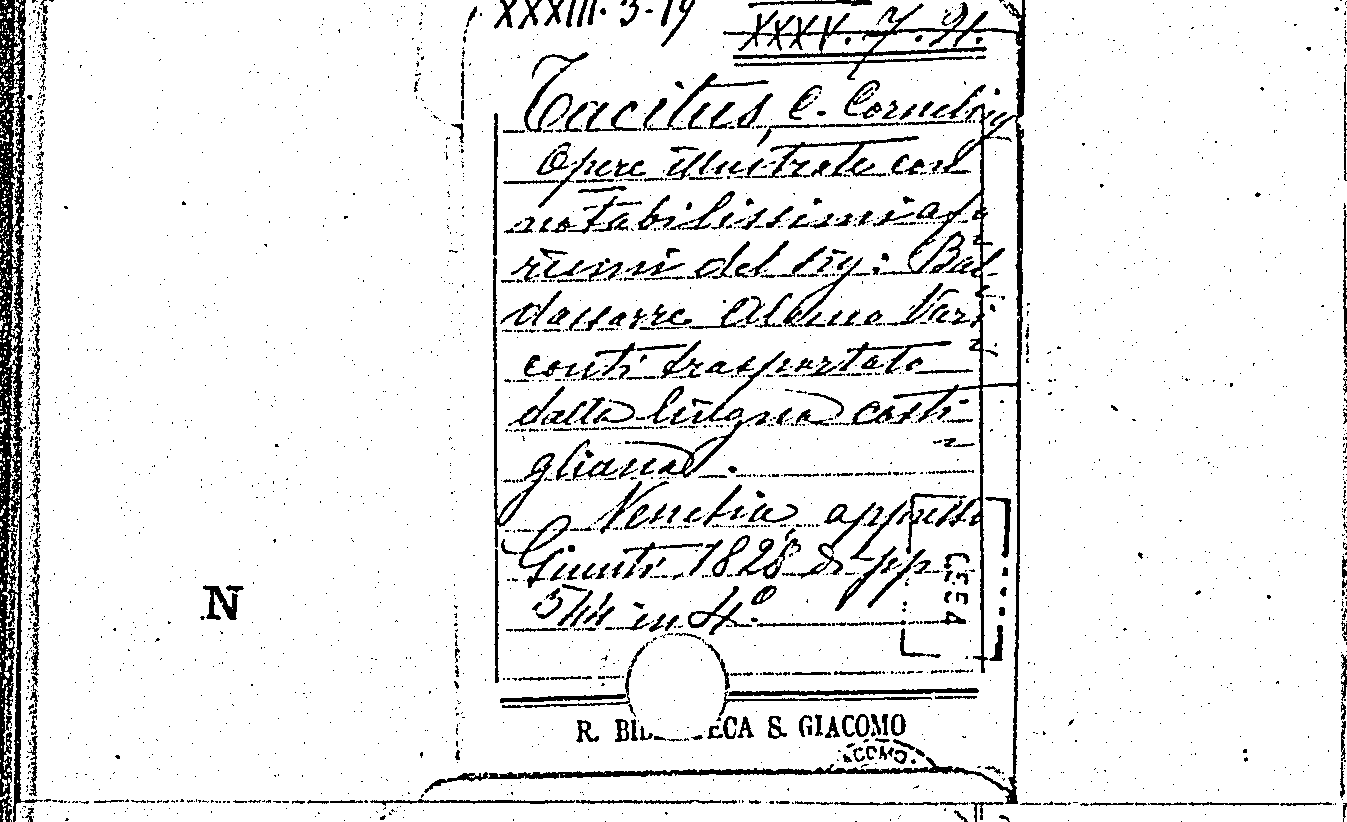 XXXIII. 3-19
XXXV. 7. 91.
Tacitus, C. Cornelius
Opere illustrate con
notabilissimi afo
rismi del sig: Bal
dassarre Alamo Vari
conti trasportate
dalla lingua casti
gliana.
Venetia, appresso
Giunti 1828 di pp
544 in 4.º
N
R. BIB TECA S. GIACOMO
COMO.